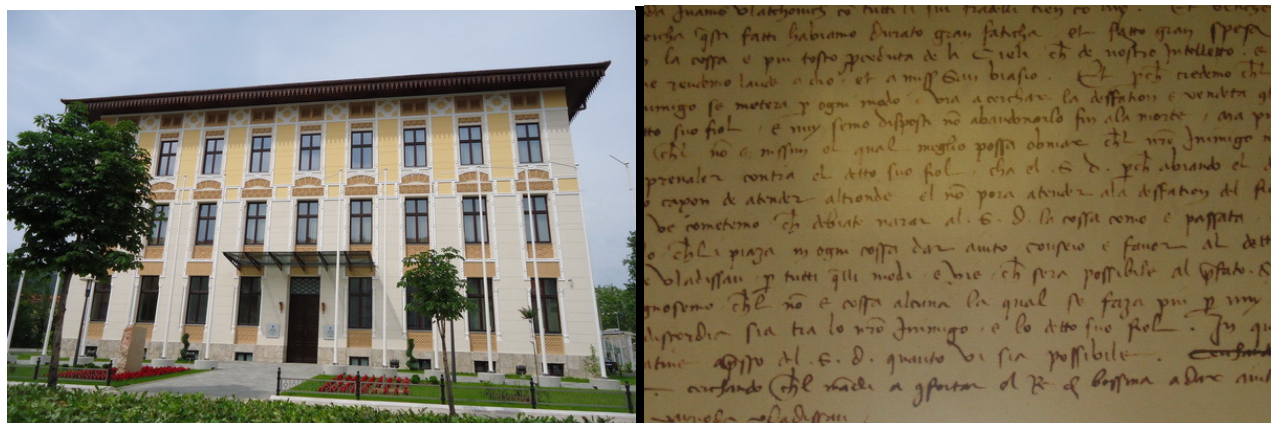 fatti habiamo durato gran faticha et fatto gran spesa
la cossa e piu tosto proceduta de li Cieli ch de nostro Intelletto e
rendemo laude a dio et a miss San biasio. Et pch credemo chl
inimigo se metera p ogni modo e via a cerchar la deffation e vendeta
suo fiol, e nuy semo disposti nō abandonarlo fin ala morte, ma
chl nō e nissun el qual meglio possa obviar chl nrō Inimigo nō
prevaler contra el detto suo fiol, cha el .S. D. pch abiando el
capon de atender altronde el nō pora atender ala deffation del
ve cometemo ch debiate narar al .S. D. la cossa como e passata
chli piaza in ogni cossa dar aiuto conseio e favor al detto
Vladissau p tutti qlli modi e vie ch sera possibile al pfato .S.
chl nō e cossa alcuna la qual se faza piu p nuy
discordia sia tra lo nrō Inimigo e lo detto suo fiol. In
apsso al .S. D. quanto vi sia possibile.
cerchando chl mandi a ofortar el Re d bossina a dar aiut
vladissau